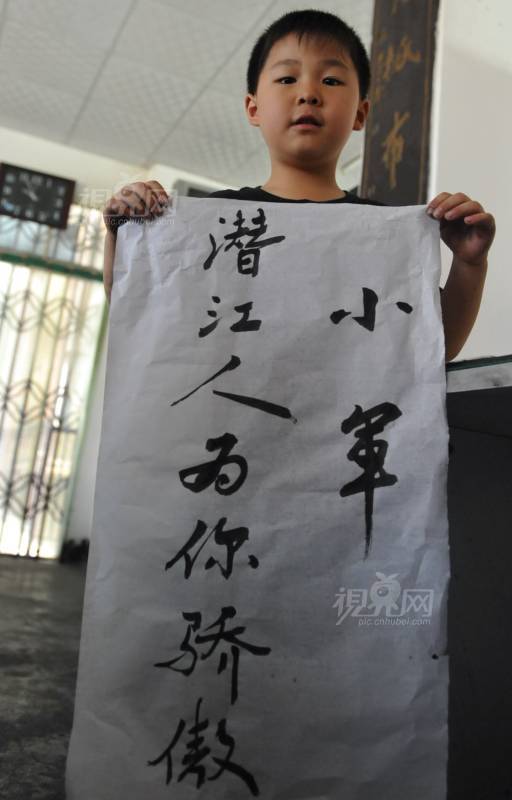 小军
潜江人为你骄傲
視界网
pic.cnhubei.com